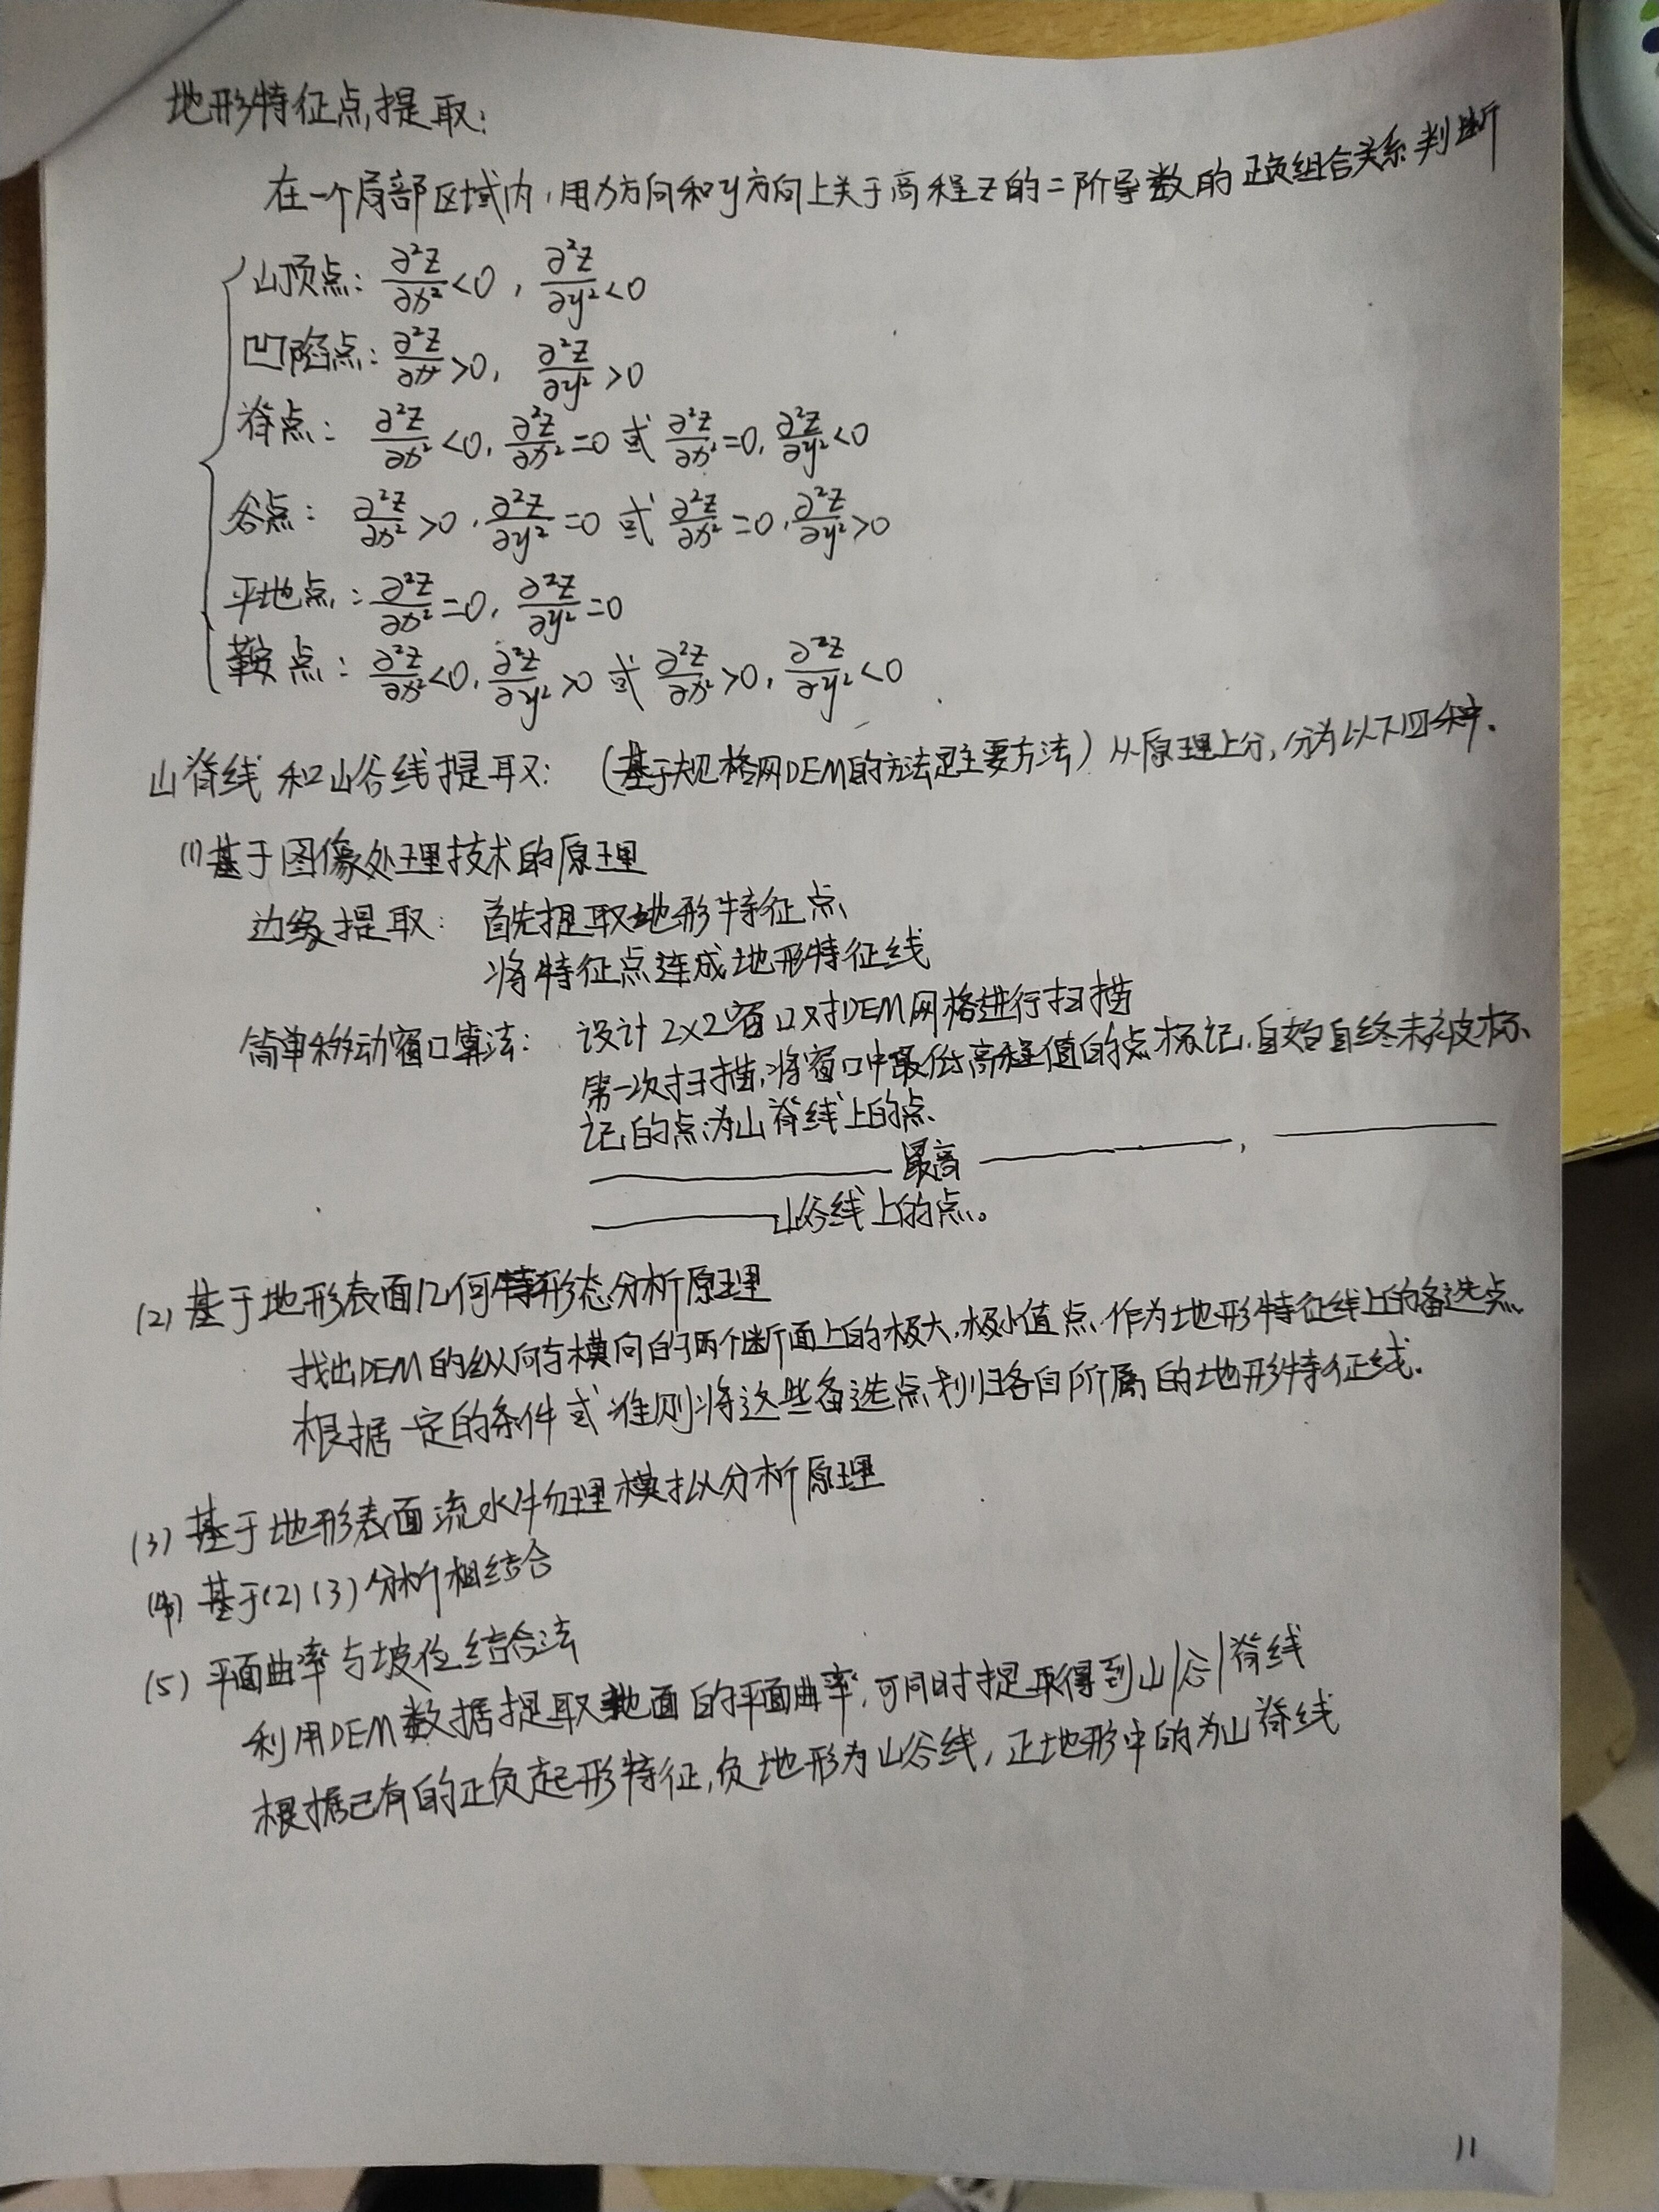 地形特征点提取:
在一个局部区域内,用x方向和y方向上关于高程Z的二阶导数的正负组合关系判断
山顶点: ∂²Z/∂x²<0, ∂²Z/∂y²<0
凹陷点: ∂²Z/∂x²>0, ∂²Z/∂y²>0
脊点: ∂²Z/∂x²<0, ∂²Z/∂x²=0 或 ∂²Z/∂x²=0, ∂²Z/∂y²<0
谷点: ∂²Z/∂x²>0, ∂²Z/∂y²=0 或 ∂²Z/∂x²=0, ∂²Z/∂y²>0
平地点: ∂²Z/∂x²=0, ∂²Z/∂y²=0
鞍点: ∂²Z/∂x²<0, ∂²Z/∂y²>0 或 ∂²Z/∂x²>0, ∂²Z/∂y²<0
山脊线和山谷线提取: (基于规格网DEM的方法是主要方法) 从原理上分,分为以下四种.
(1)基于图像处理技术的原理
边缘提取: 首先提取地形特征点
将特征点连成地形特征线
简单移动窗口算法: 设计2×2窗口对DEM网格进行扫描
第一次扫描,将窗口中最低高程值的点标记,自始自终未被标
记的点为山脊线上的点.
最高 ,
山谷线上的点。
(2)基于地形表面几何形态分析原理
找出DEM的纵向与横向的两个断面上的极大,极小值点,作为地形特征线上的备选点
根据一定的条件或准则将这些备选点划归各自所属的地形特征线.
(3)基于地形表面流水物理模拟分析原理
(4)基于(2)(3)分析相结合
(5)平面曲率与坡位结合法
利用DEM数据提取地面的平面曲率,可同时提取得到山|谷|脊线
根据已有的正负起形特征,负地形为山谷线,正地形中的为山脊线
11